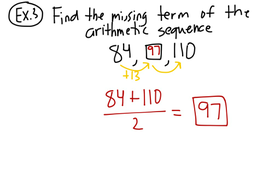 Ex.3 Find the missing term of the
arithmetic sequence
84, 97, 110
+13
84+110
2
= 97